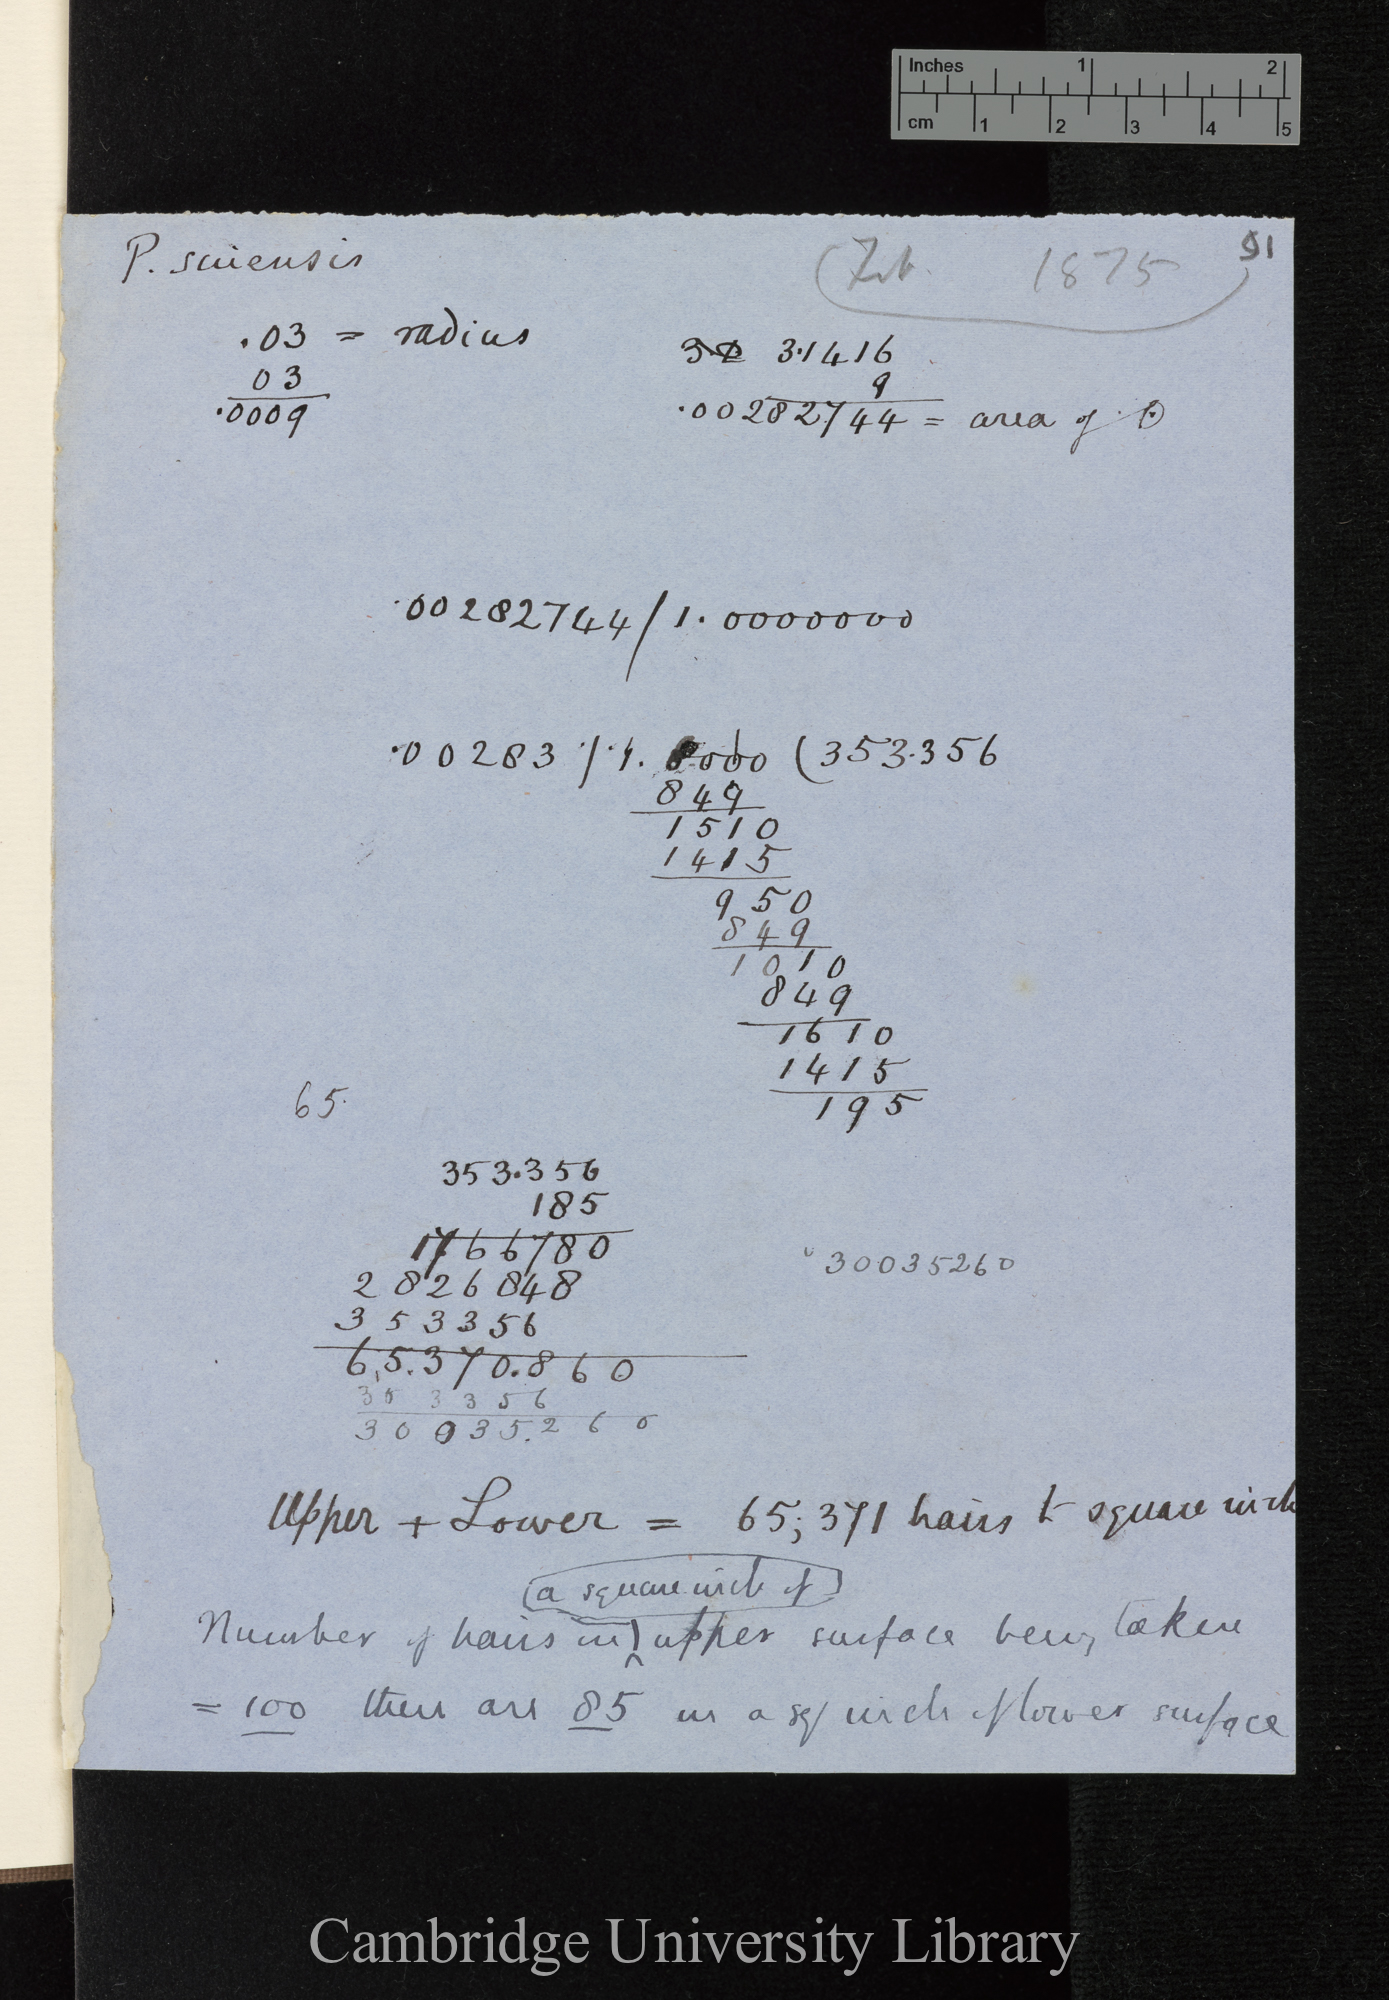 Inches 1 2
cm 1 2 3 4 5
P. sinensis (Feb. 1875) 91
.03 = radius
03
.0009
3.1416
9
.00282744 = area of ⊙
.00282744/1.0000000
.00283/1.0000(353.356
849
1510
1415
950
849
1010
849
1610
1415
195
65.
353.356
185
1766780
2826848
353356
65.370.860
30035260
353356
30035.260
Upper + Lower = 65,371 hairs to square inch
(a square inch of)
Number of hairs in upper surface being taken
= 100 there are 85 in a sq inch of lower surface
Cambridge University Library